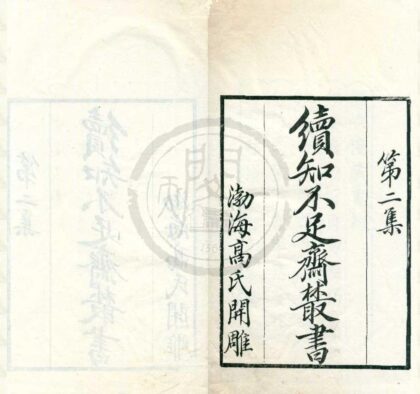 第二集
續知不足齋叢書
渤海高氏開雕